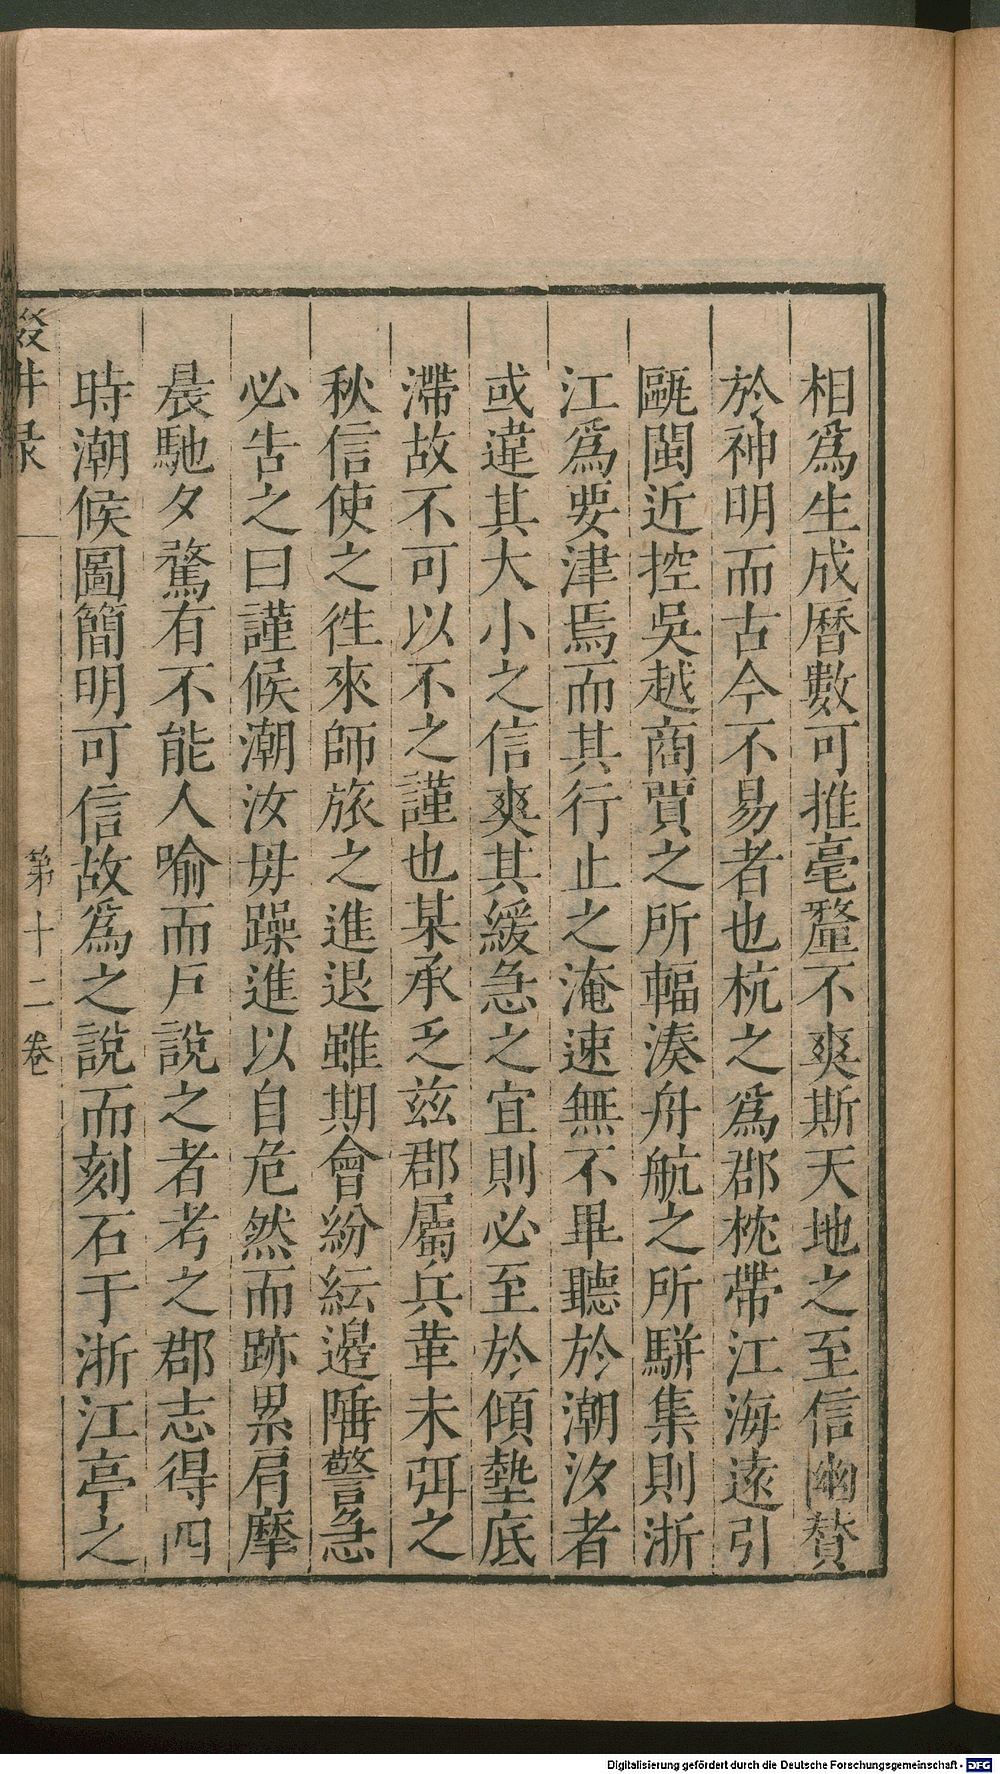 相爲生成曆數可推毫釐不爽斯天地之至信幽贊
於神明而古今不易者也杭之爲郡枕帶江海遠引
甌閩近控吳越商賈之所輻湊舟航之所駢集則浙
江爲要津焉而其行止之淹速無不畢聽於潮汐者
或違其大小之信爽其緩急之宜則必至於傾墊底
滯故不可以不之謹也某承乏兹郡屬兵革未弭之
秋信使之徃來師旅之進退雖期會紛紜邊陲警急
必告之曰謹候潮汝毋躁進以自危然而跡累肩摩
晨馳夕騖有不能人喻而戶說之者考之郡志得四
時潮候圖簡明可信故爲之說而刻石于浙江亭之
輟耕录
第十二卷
Digitalisierung gefördert durch die Deutsche Forschungsgemeinschaft - DFG